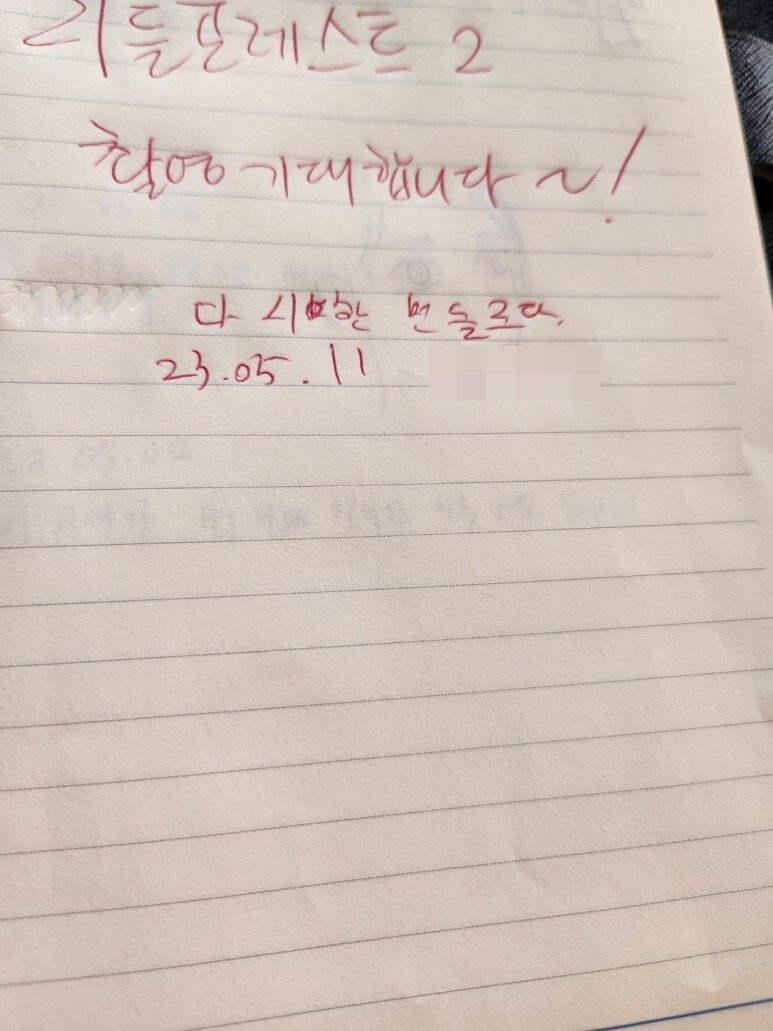 리틀포레스트 2
촬영 기대합니다 ~!
다시 한 번 들르다.
23.05.11